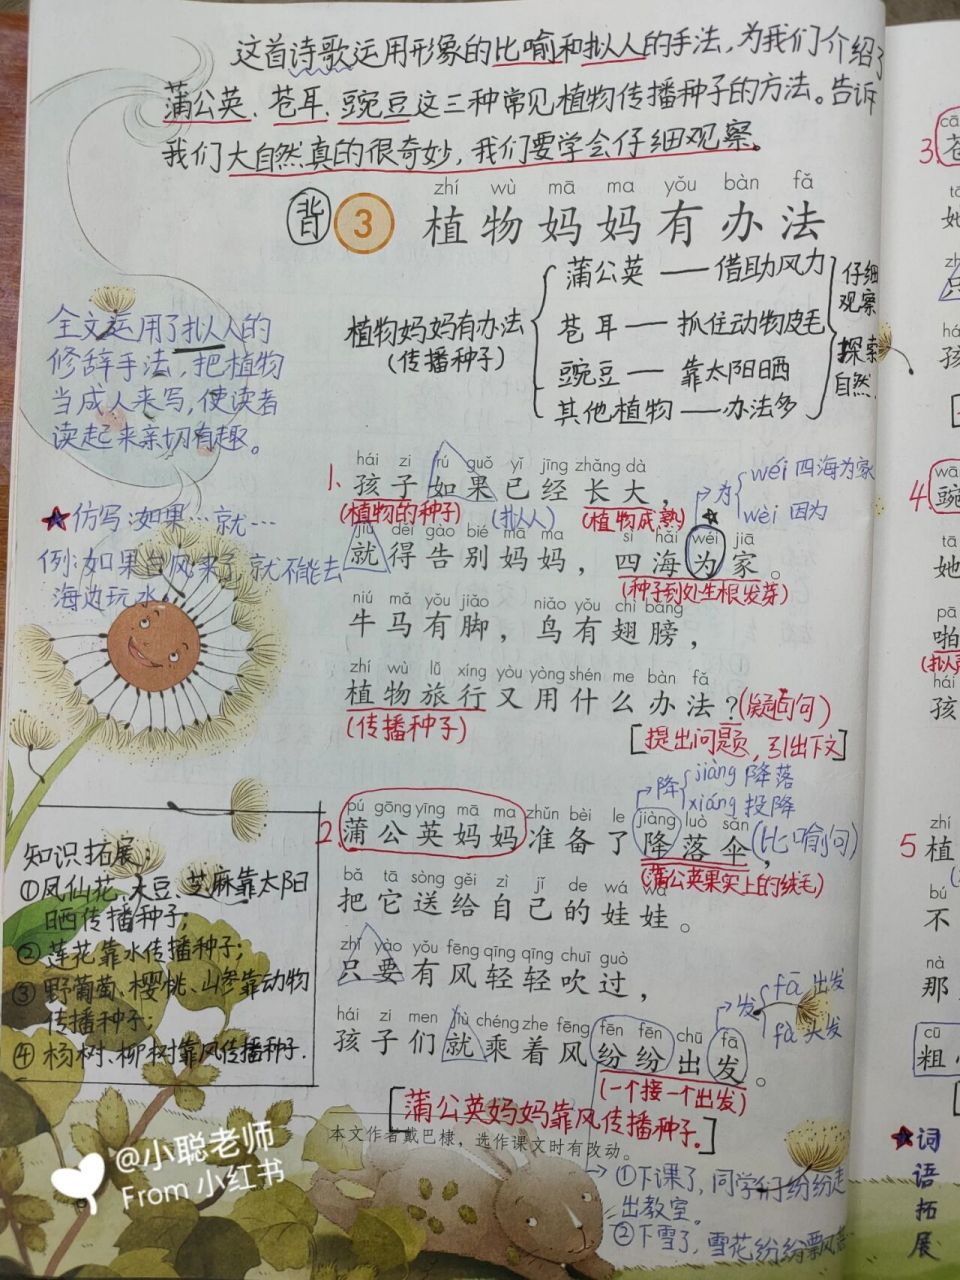 这首诗歌运用形象的比喻和拟人的手法，为我们介绍了
蒲公英、苍耳、豌豆这三种常见植物传播种子的方法。告诉
我们大自然真的很奇妙，我们要学会仔细观察。
zhí wù mā ma yǒu bàn fǎ
背 3 植物妈妈有办法
植物妈妈有办法
(传播种子)
蒲公英——借助风力
苍耳——抓住动物皮毛
豌豆——靠太阳晒
其他植物——办法多
仔细
观察
探索
自然
全文运用了拟人的
修辞手法，把植物
当成人来写，使读者
读起来亲切有趣。
仿写:如果…就…
例:如果台风来了,就不能去
海边玩水
hái zi rú guǒ yǐ jīng zhǎng dà
1、孩子如果已经长大，
(植物的种子) (拟人) (植物成熟)
为 wéi 四海为家
wèi 因为
jiù děi gào bié mā ma sì hǎi wéi jiā
就得告别妈妈，四海为家。
(种子到处生根发芽)
niú mǎ yǒu jiǎo niǎo yǒu chì bǎng
牛马有脚，鸟有翅膀，
zhí wù lǚ xíng yòu yòng shén me bàn fǎ
植物旅行又用什么办法？(疑问句)
(传播种子)
[提出问题,引出下文]
降 jiàng 降落
xiáng 投降
pú gōng yīng mā ma zhǔn bèi le jiàng luò sǎn
2、蒲公英妈妈准备了降落伞，(比喻句)
(蒲公英果实上的绒毛)
bǎ tā sòng gěi zì jǐ de wá wa
把它送给自己的娃娃。
zhǐ yào yǒu fēng qīng qīng chuī guò
只要有风轻轻吹过，
发 fā 出发
fà 头发
hái zi men jiù chéng zhe fēng fēn fēn chū fā
孩子们就乘着风纷纷出发。
(一个接一个出发)
[蒲公英妈妈靠风传播种子.]
本文作者戴巴棣，选作课文时有改动。
①下课了，同学们纷纷走
出教室。
②下雪了，雪花纷纷飘
知识拓展：
①凤仙花、大豆、芝麻靠太阳
晒传播种子;
②莲花靠水传播种子;
③野葡萄、樱桃、山参靠动物
传播种子;
④杨树、柳树靠风传播种子.
@小聪老师
From 小红书
3、
苍
她
孩
4
豌
她
啪
孩
5 植
zhí
bú
不
nà
那
cū
粗
词
语
拓
展